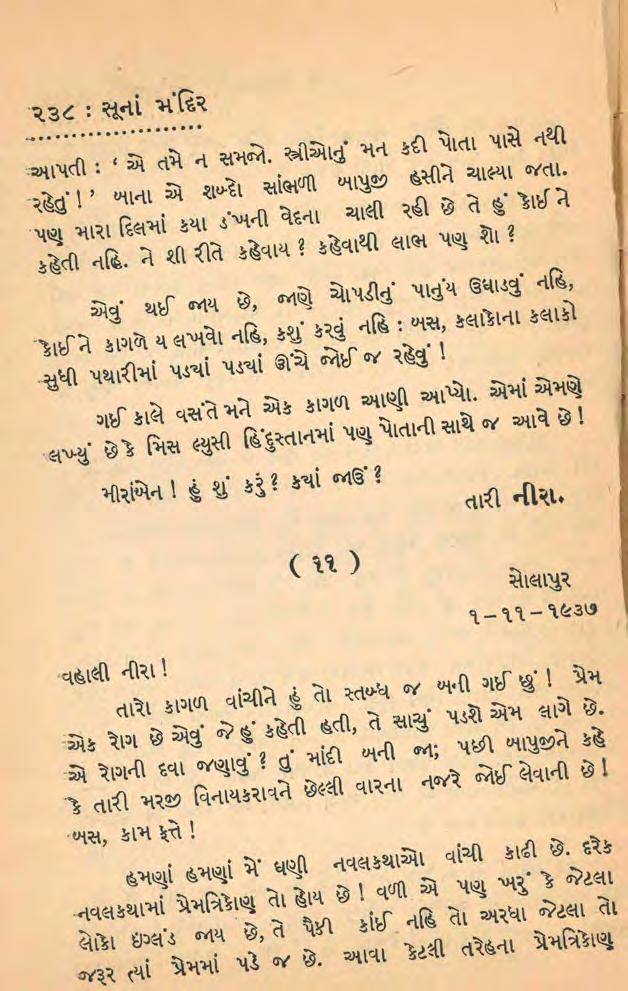 ૨૩૮ : સૂનાં મંદિર
આપતી : ‘ એ તમે ન સમજો. સ્ત્રીઓનું મન કદી પોતા પાસે નથી
રહેતું ! ’ બાના એ શબ્દો સાંભળી બાપુજી હસીને ચાલ્યા જતા.
પણ મારા દિલમાં કયા ડંખની વેદના ચાલી રહી છે તે હું કોઈ ને
કહેતી નહિ. ને શી રીતે કહેવાય ? કહેવાથી લાભ પણ શો ?
એવું થઈ જાય છે, જાણે ચોપડીનું પાનુંય ઉઘાડવું નહિ,
કોઈ ને કાગળે ય લખવો નહિ, કશું કરવું નહિ : બસ, કલાકોના કલાકો
સુધી પથારીમાં પડયાં પડયાં ઊંચે જોઈ જ રહેવું !
ગઈ કાલે વસંતે મને એક કાગળ આણી આપ્યો. એમાં એમણે
લખ્યું છે કે મિસ લ્યુસી હિંદુસ્તાનમાં પણ પોતાની સાથે જ આવે છે !
મીરાંબેન ! હું શું કરું ? કયાં જાઉં ?
તારી નીરા.
( ૧૧ )
સોલાપુર
૧-૧૧-૧૯૩૭
વહાલી નીરા !
તારો કાગળ વાંચીને હું તો સ્તબ્ધ જ બની ગઈ છું ! પ્રેમ
એક રોગ છે એવું જે હું કહેતી હતી, તે સાચું પડશે એમ લાગે છે.
એ રોગની દવા જણાવું ? તું માંદી બની જા; પછી બાપુજીને કહે
કે તારી મરજી વિનાયકરાવને છેલ્લી વારના નજરે જોઈ લેવાની છે !
બસ, કામ ફત્તે !
હમણાં હમણાં મેં ઘણી નવલકથાઓ વાંચી કાઢી છે. દરેક
નવલકથામાં પ્રેમત્રિકોણ તો હોય છે ! વળી એ પણ ખરું કે જેટલા
લોકો ઇંગ્લંડ જાય છે, તે પૈકી કાંઈ નહિ તો અરધા જેટલા તો
જરૂર ત્યાં પ્રેમમાં પડે જ છે. આવા કેટલી તરેહના પ્રેમત્રિકોણ